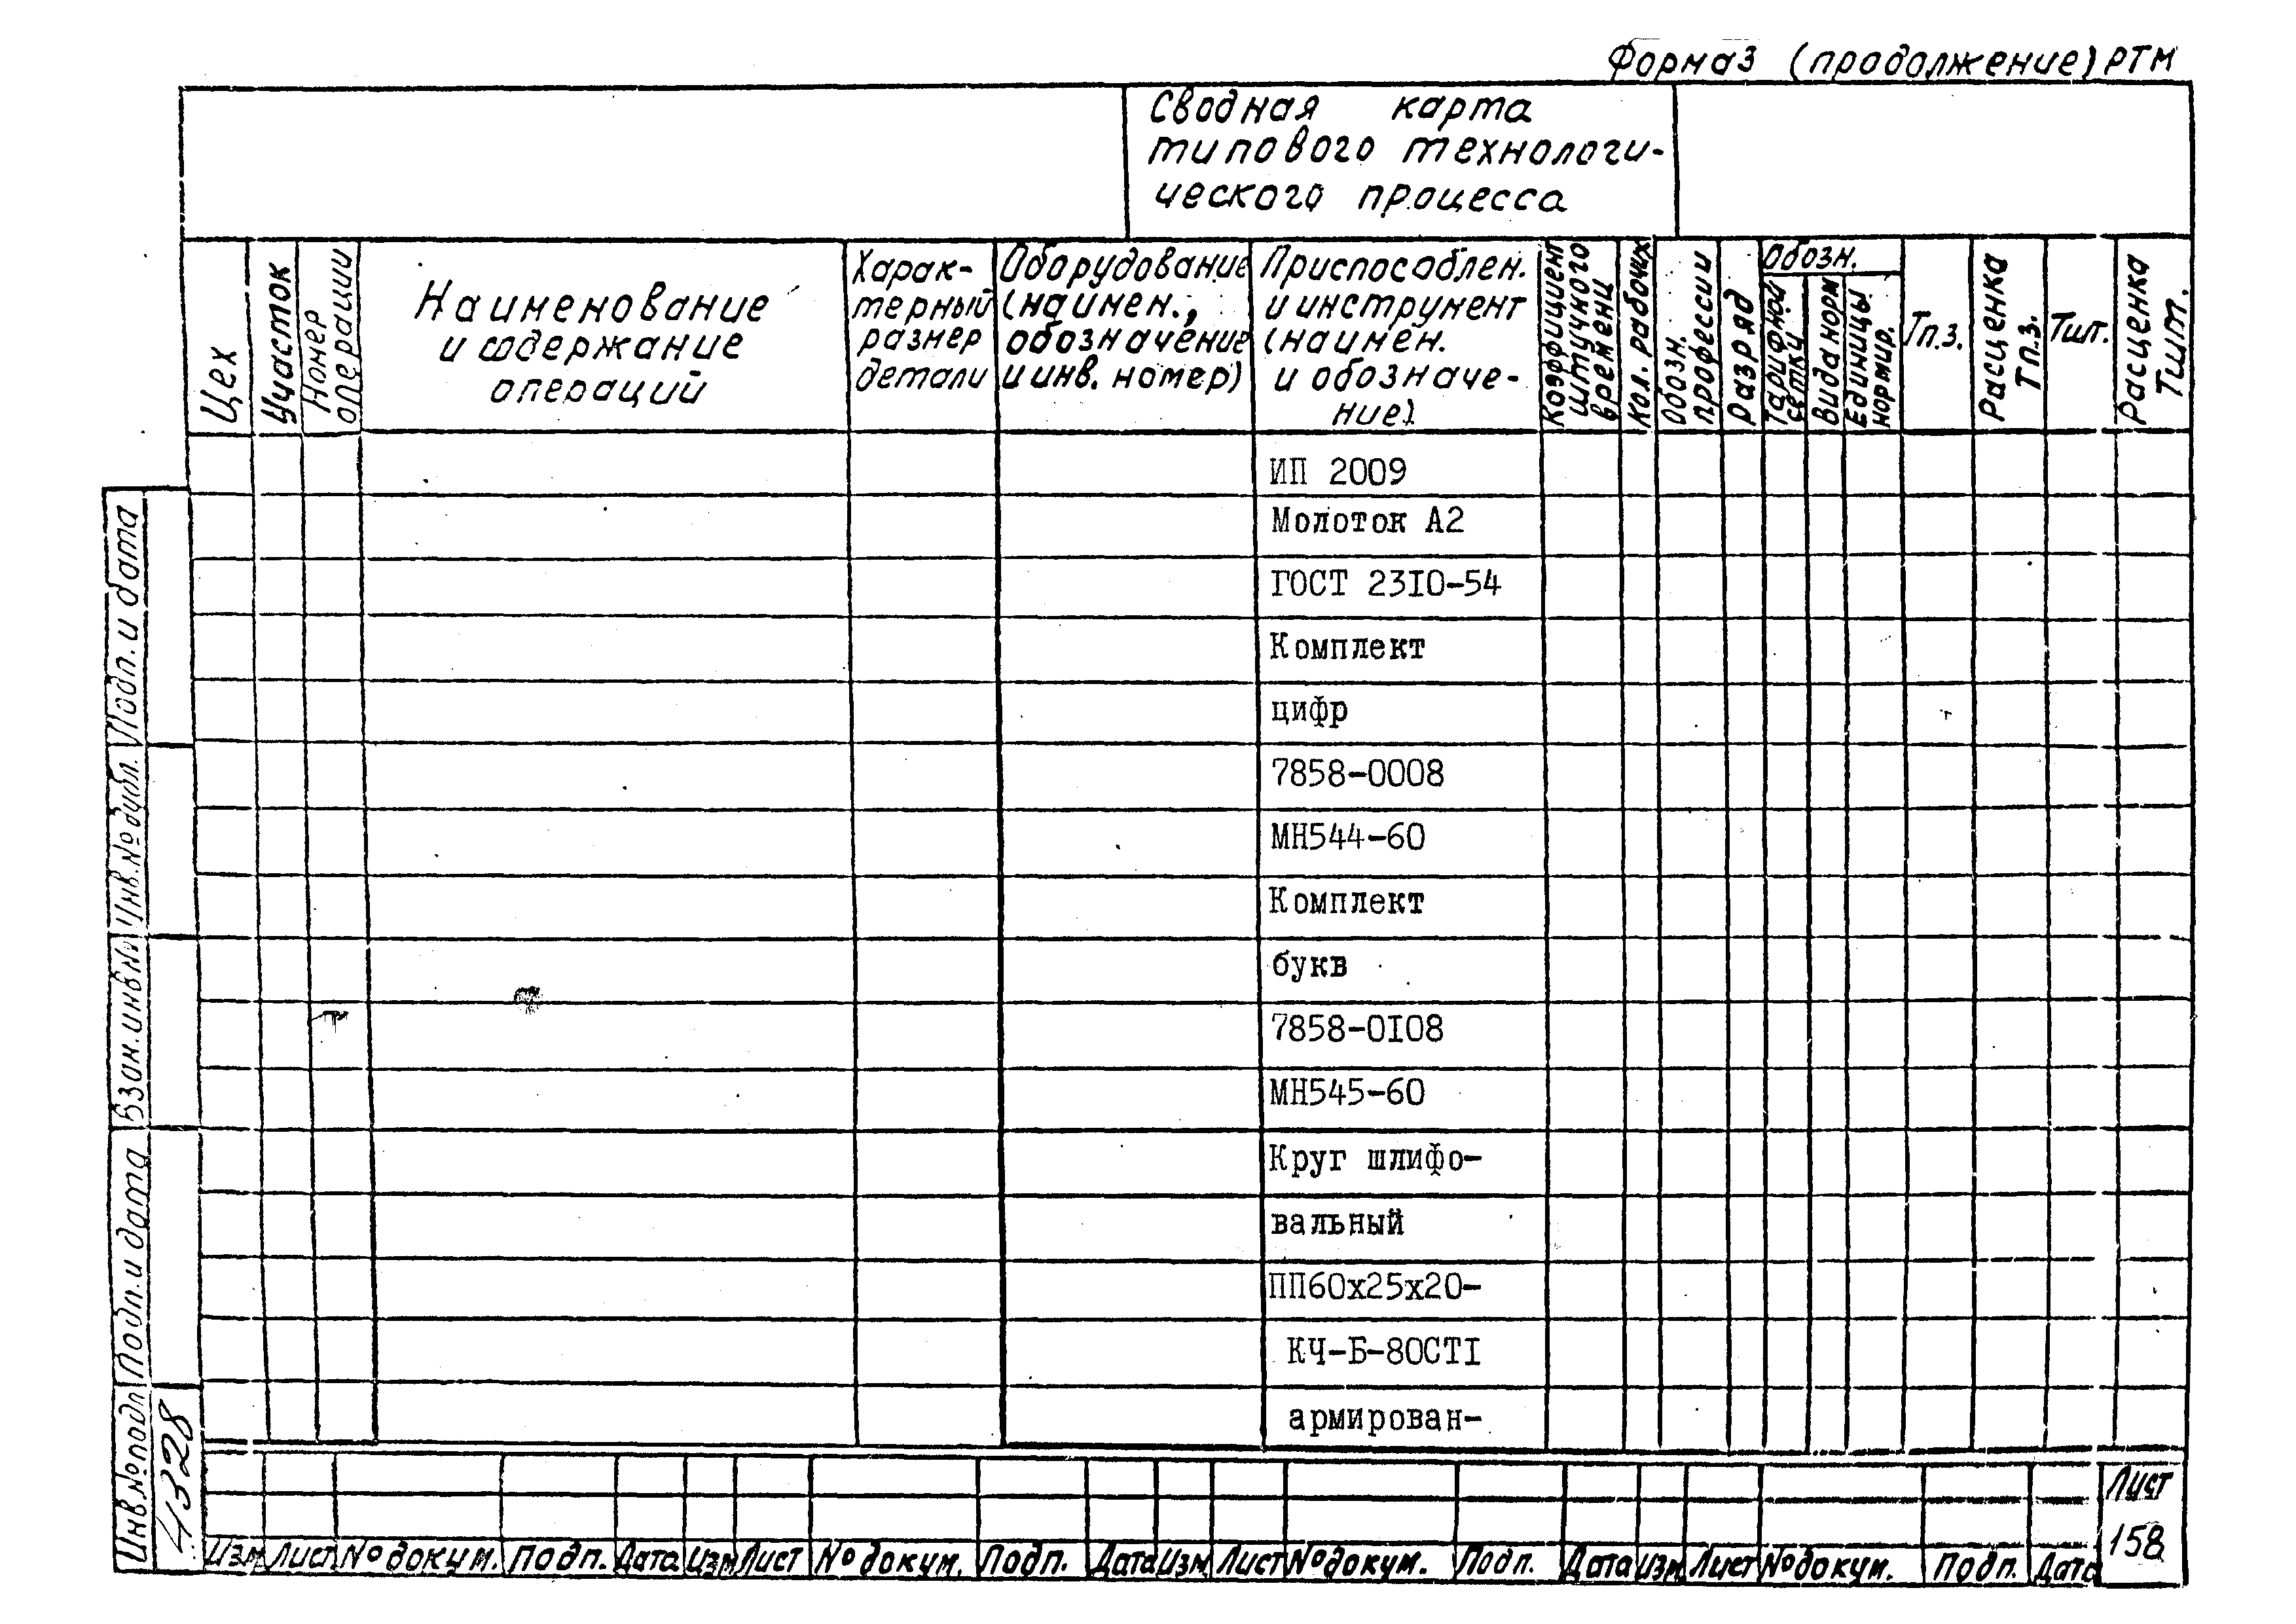 Форма 3 (продолжение) РТМ
Сводная карта
типового технологи-
ческого процесса
Цех
Участок
Номер
операции
Наименование
и содержание
операций
Харак-
терный
размер
детали
Оборудование
(наимен.,
обозначение
и инв. номер)
Приспособлен.
и инструмент
(наимен.
и обозначе-
ние).
Коэффициент
штучного
времени
Кол. рабочих
Обозн.
профессии
Разряд
Обозн.
Тарифной
сетки
Вида норм
Единицы
нормир.
Тп.з.
Расценка
Тп.з.
Тшт.
Расценка
Тшт.
ИП 2009
Молоток А2
ГОСТ 23I0-54
Комплект
цифр
7858-0008
МН544-60
Комплект
букв
7858-0I08
МН545-60
Круг шлифо-
вальный
ПП60х25х20-
КЧ-Б-80СТI
армирован-
Подп. и дата
Инв.№ дубл.
Взам.инв№
Подп. и дата
Инв.№подп
4328
Изм Лист № докум. Подп. Дата Изм Лист № докум. Подп. Дата Изм Лист № докум. Подп. Дата Изм Лист № докум. Подп. Дата
Лист
158